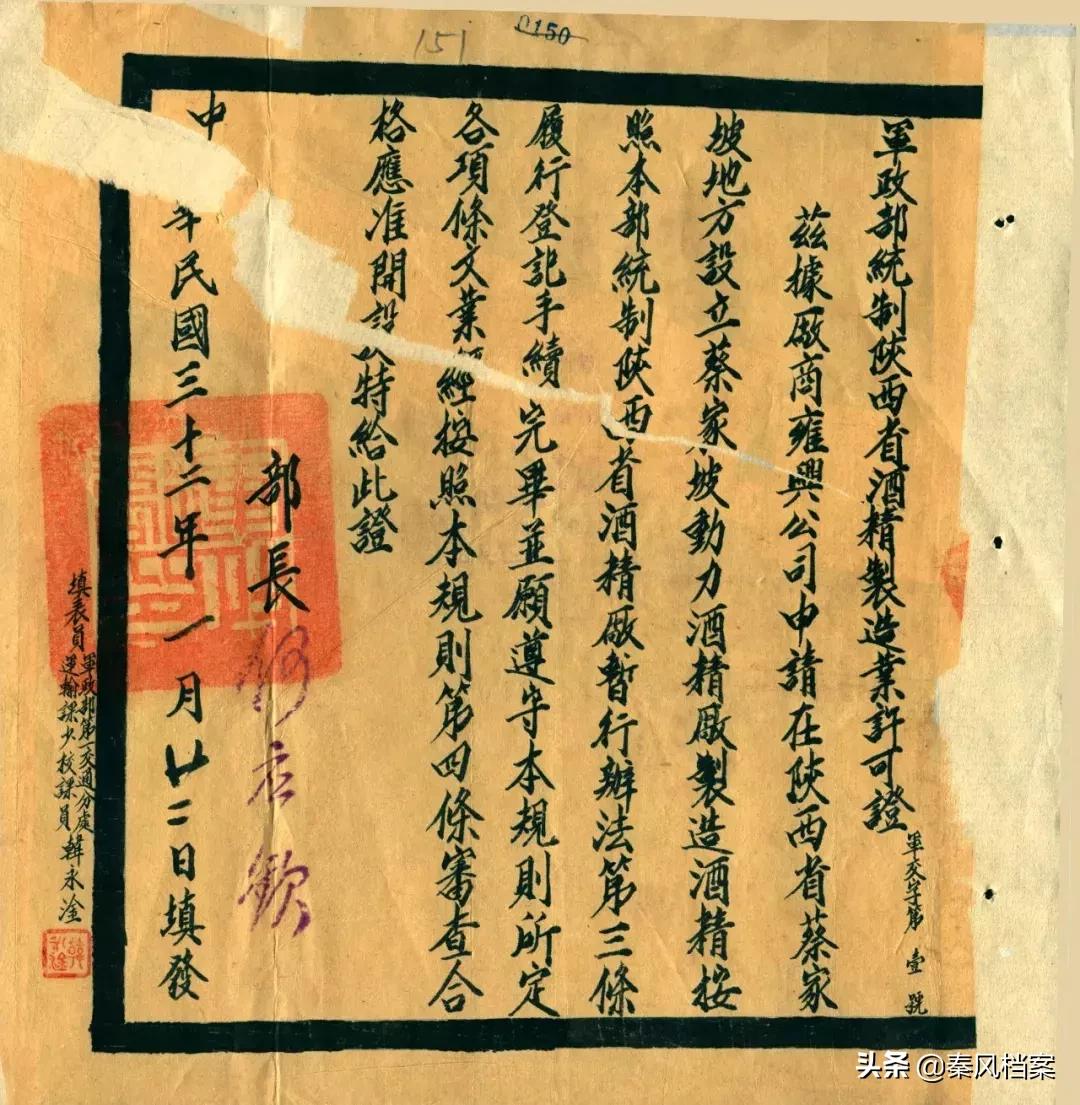 151
0150
軍政部統制陝西省酒精製造業許可證
軍交字第壹號
茲據廠商雍興公司申請在陝西省蔡家
坡地方設立蔡家坡動力酒精廠製造酒精按
照本部統制陝西省酒精廠暫行辦法第三條
履行登記手續完畢並願遵守本規則所定
各項條文業經按照本規則第四條審查合
格應准開設特給此證
部長何应欽
中華民國三十二年一月廿二日填發
填表員
軍政部第一交通分處
運輸課少校課員
韓永淦
头条@秦风档案